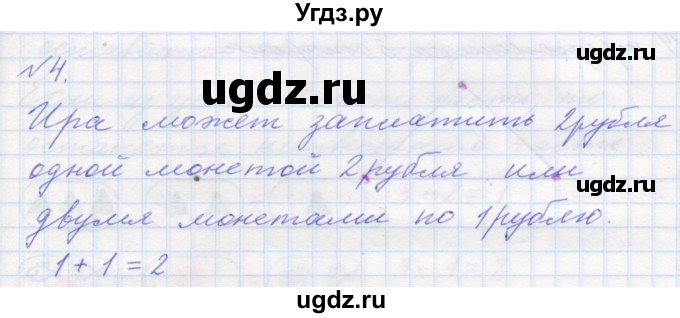 Угдз.ру
№4.
ugdz.ru
Ира может заплатить 2 рубля
одной монетой 2 рубля или
ugdz.ru
двумя монетами по 1 рублю.
1 + 1 = 2
ugdz.ru